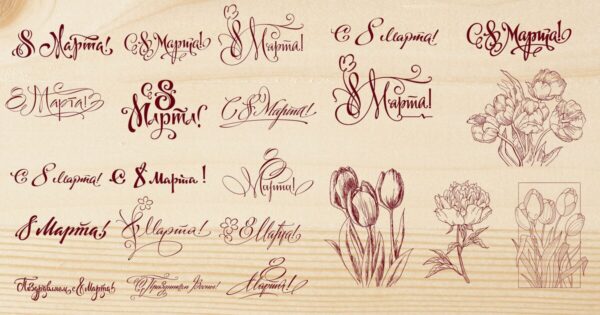 8 Марта!
С 8 Марта!
8 Марта!
С 8 марта!
С 8 Марта!
8 Марта!
С 8 Марта!
С 8 Марта!
8 Марта!
С 8 марта!
С 8 Марта!
8 Марта!
8 Марта!
8 Марта!
8 Марта!
Поздравляем с 8 Марта!
С Праздником Весны!
8 Марта!